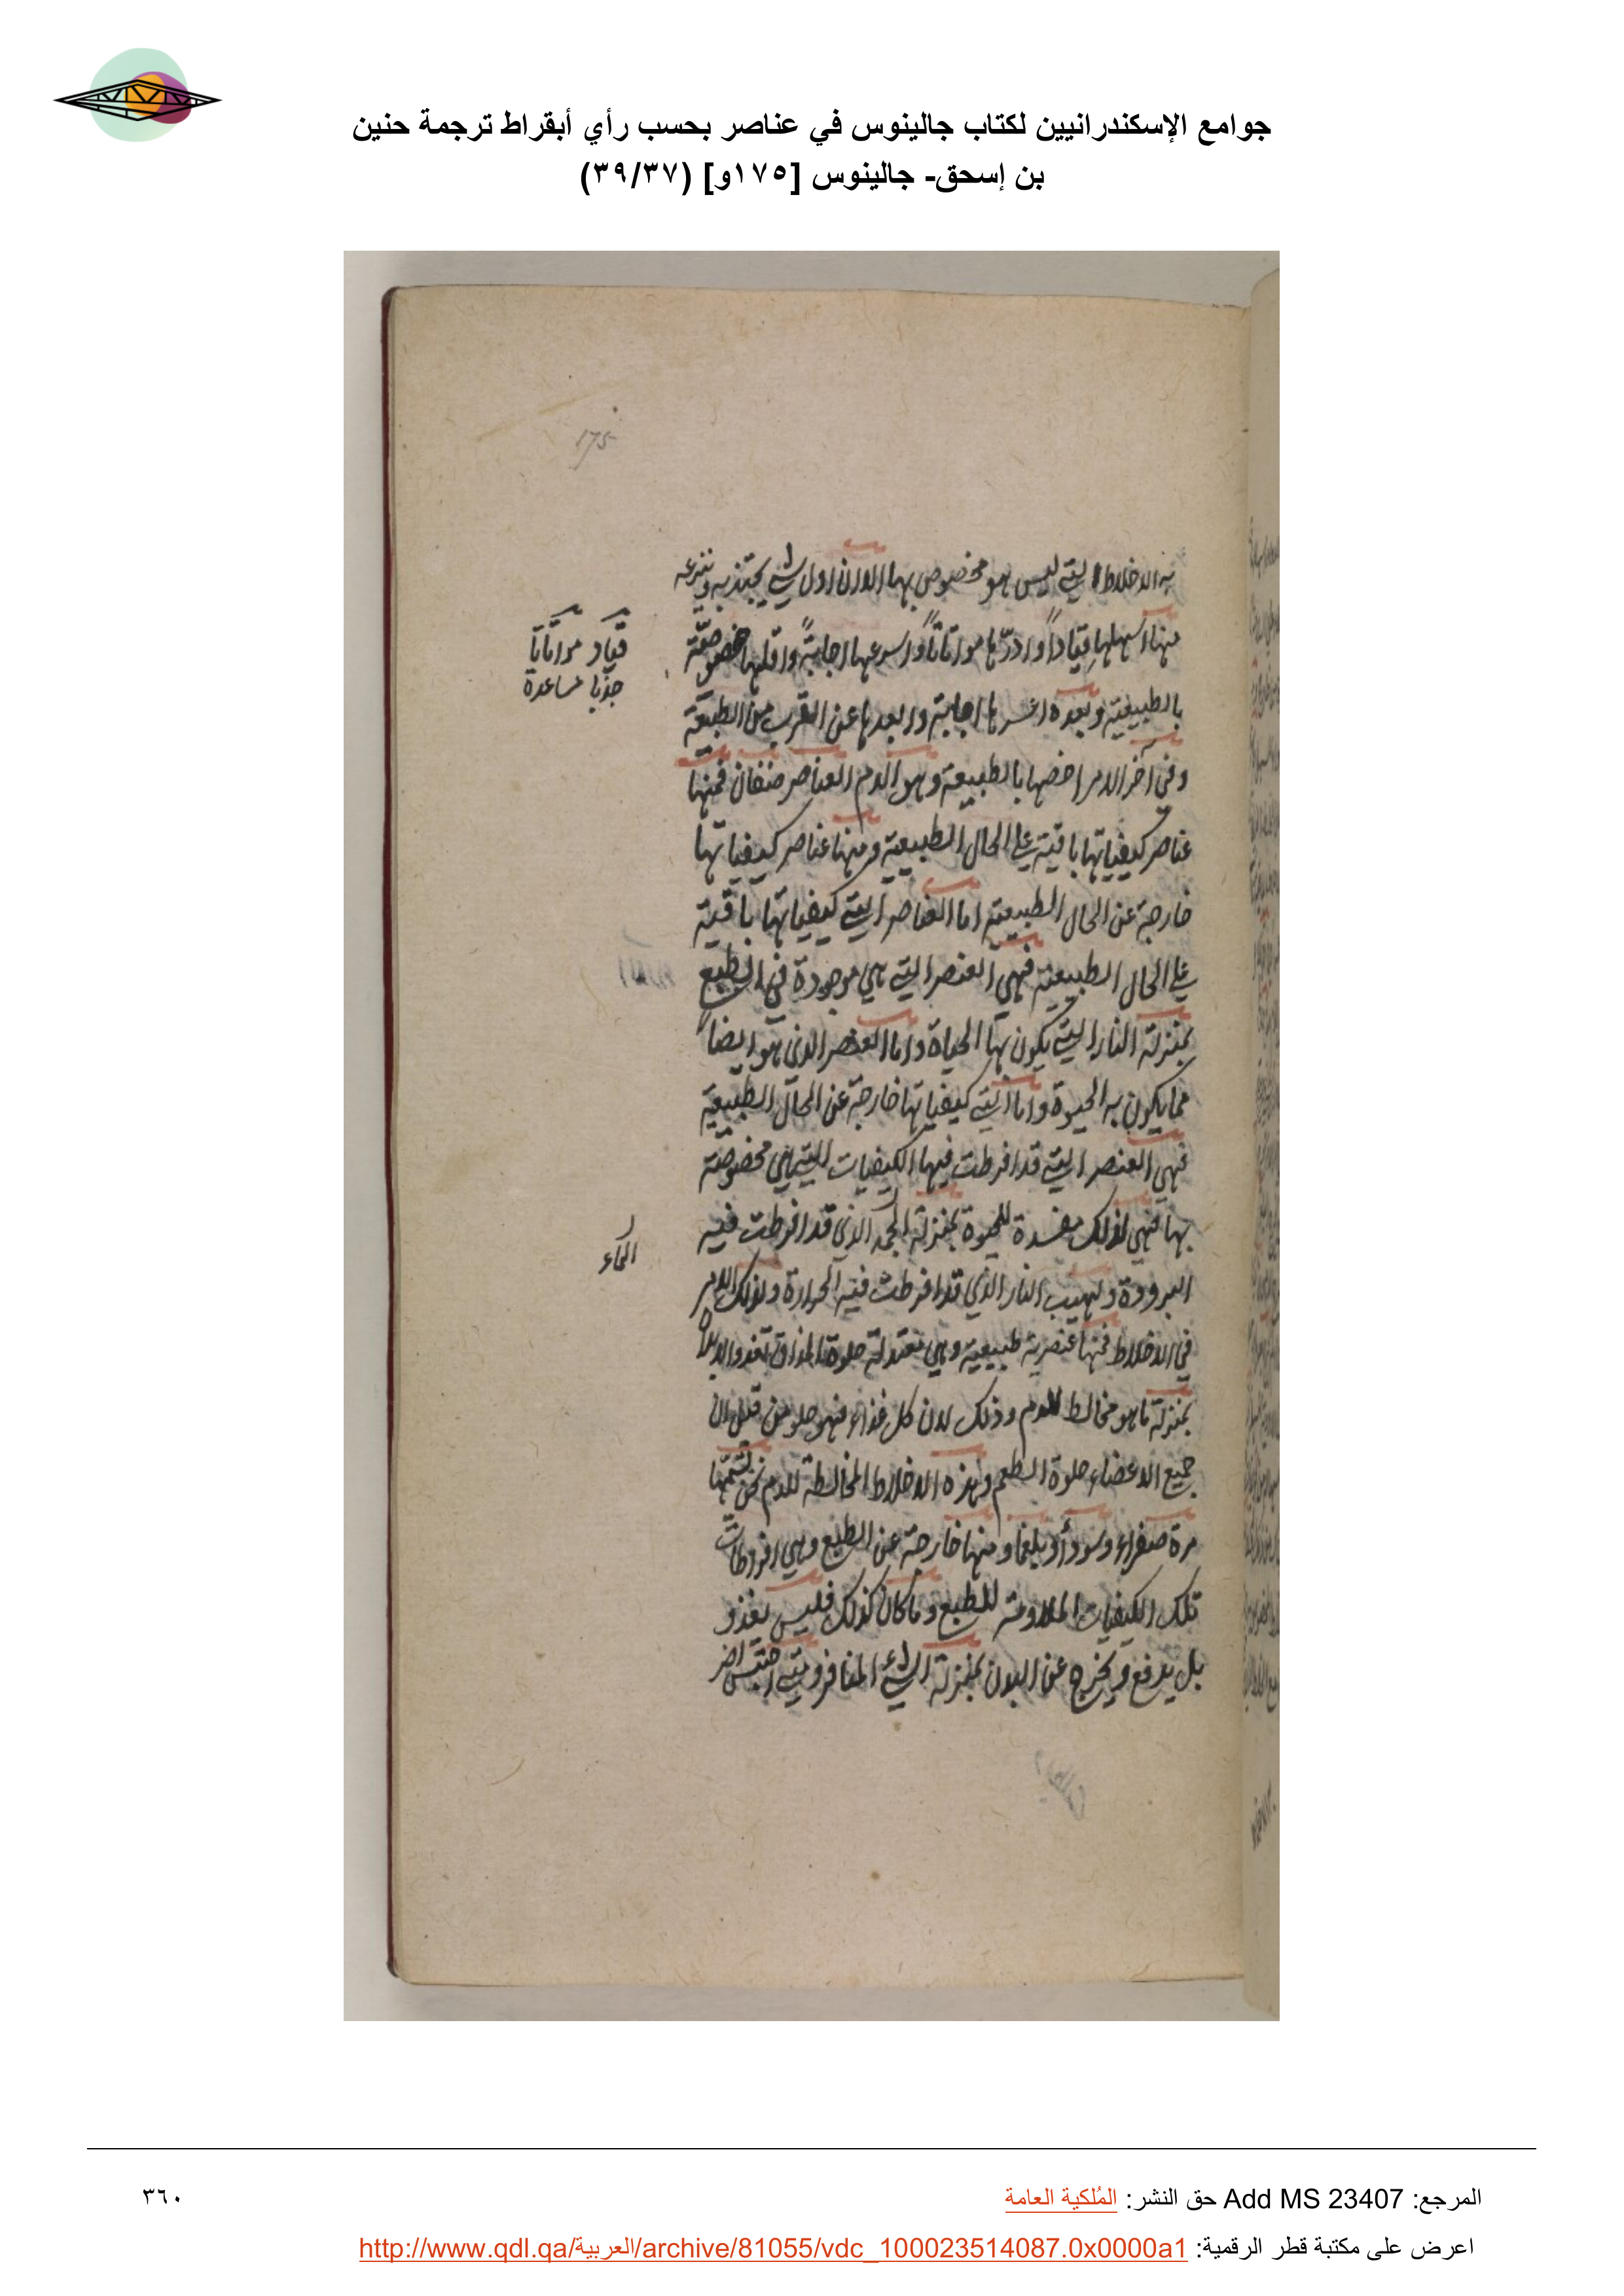 جوامع الإسكندرانيين لكتاب جالينوس في عناصر بحسب رأي أبقراط ترجمة حنين
بن إسحق- جالينوس [١٧٥و] (٣٩/٣٧)
175
به الاخلاط التي ليس هو مخصوص بها الا ان اول شي يجتذبه وينزعه
منها اسهلها قيادا واردّها مواتاتاً واسرعها اجابةً واقلها خصوصية
قياد مواتاتا
جذبا مساعدة
بالطبيعية وبعده اعسرها اجابة وابعدها عن القرب من الطبيعة
وفي آخر الامر اخصها بالطبيعة وهو الدم العناصر صنفان فمنها
عناصر كيفياتها باقية على الحال الطبيعية ومنها عناصر كيفياتها
خارجة عن الحال الطبيعية اما العناصر التي كيفياتها باقية
على الحال الطبيعية فهي العنصر التي هي موجودة في الطبع
بمنزلة النار التي يكون بها الحياة واما العنصر الذي هو ايضاً
مما يكون به الحيوة واما التي كيفياتها خارجة عن الحال الطبيعية
فهي العنصر التي قد افرطت فيها الكيفيات التي هي مخصوصة
بها فهي لذلك مفسدة للحيوة بمنزلة الجمد الذي قد افرطت فيه
الماء
البرودة ولهيب النار الذي قد افرطت فيه الحرارة ولذلك الامر
في الاخلاط فمنها عنصرية طبيعية وهي معتدلة حلوة المذاق تغذوا
بمنزلة ما هو مخالط للدم وذلك لان كل غذاء فهو حلو من قبل ان
جميع الاعضاء حلوة الطعم وهذه الاخلاط المخالطة للدم نحن نسميها
مرة صفراء وسودأ وبلغما ومنها خارجة عن الطبع وهي افراطات
تلك الكيفيات الملاومة للطبع وما كان كذلك فليس يغذو
بل يدفع ويخرج عن البدن بمنزلة الشئ المنافر ومتى احتبس اضر
المرجع: Add MS 23407 حق النشر: المُلكية العامة
٣٦٠
اعرض على مكتبة قطر الرقمية: http://www.qdl.qa/العربية/archive/81055/vdc_100023514087.0x0000a1